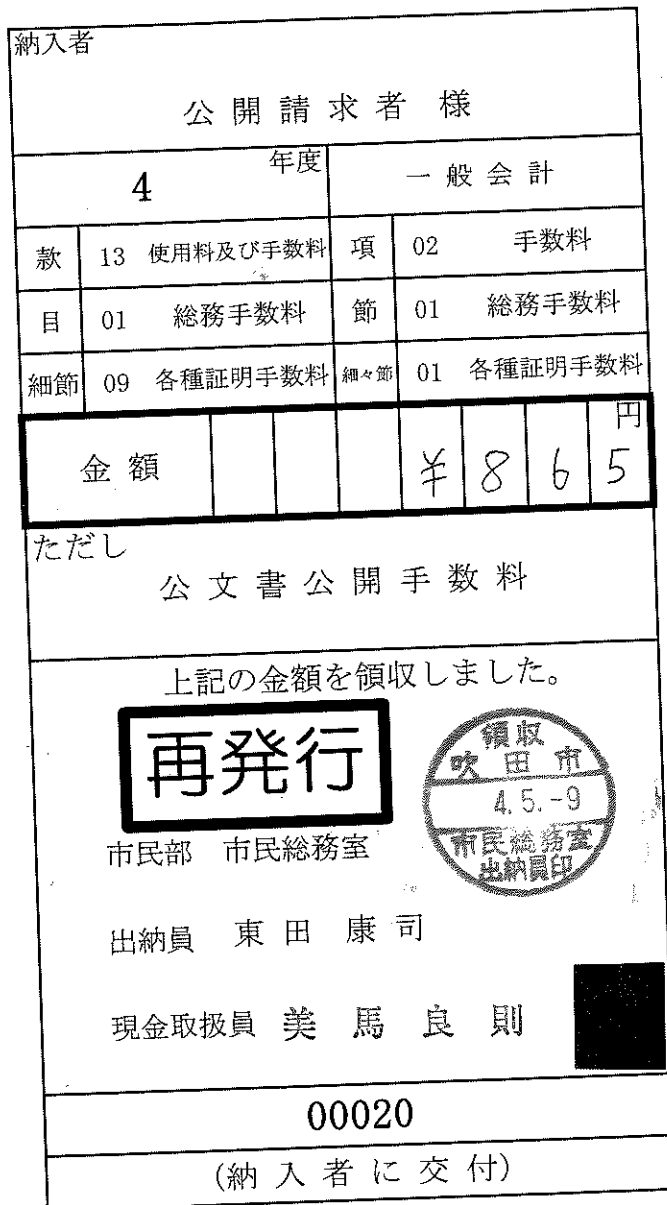 納入者
公開請求者 様
4 年度 一般会計
款 13 使用料及び手数料 項 02 手数料
目 01 総務手数料 節 01 総務手数料
細節 09 各種証明手数料 細々節 01 各種証明手数料
金額 ¥865円
ただし
公文書公開手数料
上記の金額を領収しました。
再発行
領収
吹田市
4.5.-9
市民総務室
出納員印
市民部 市民総務室
出納員 東田 康司
現金取扱員 美馬良則
00020
(納入者に交付)